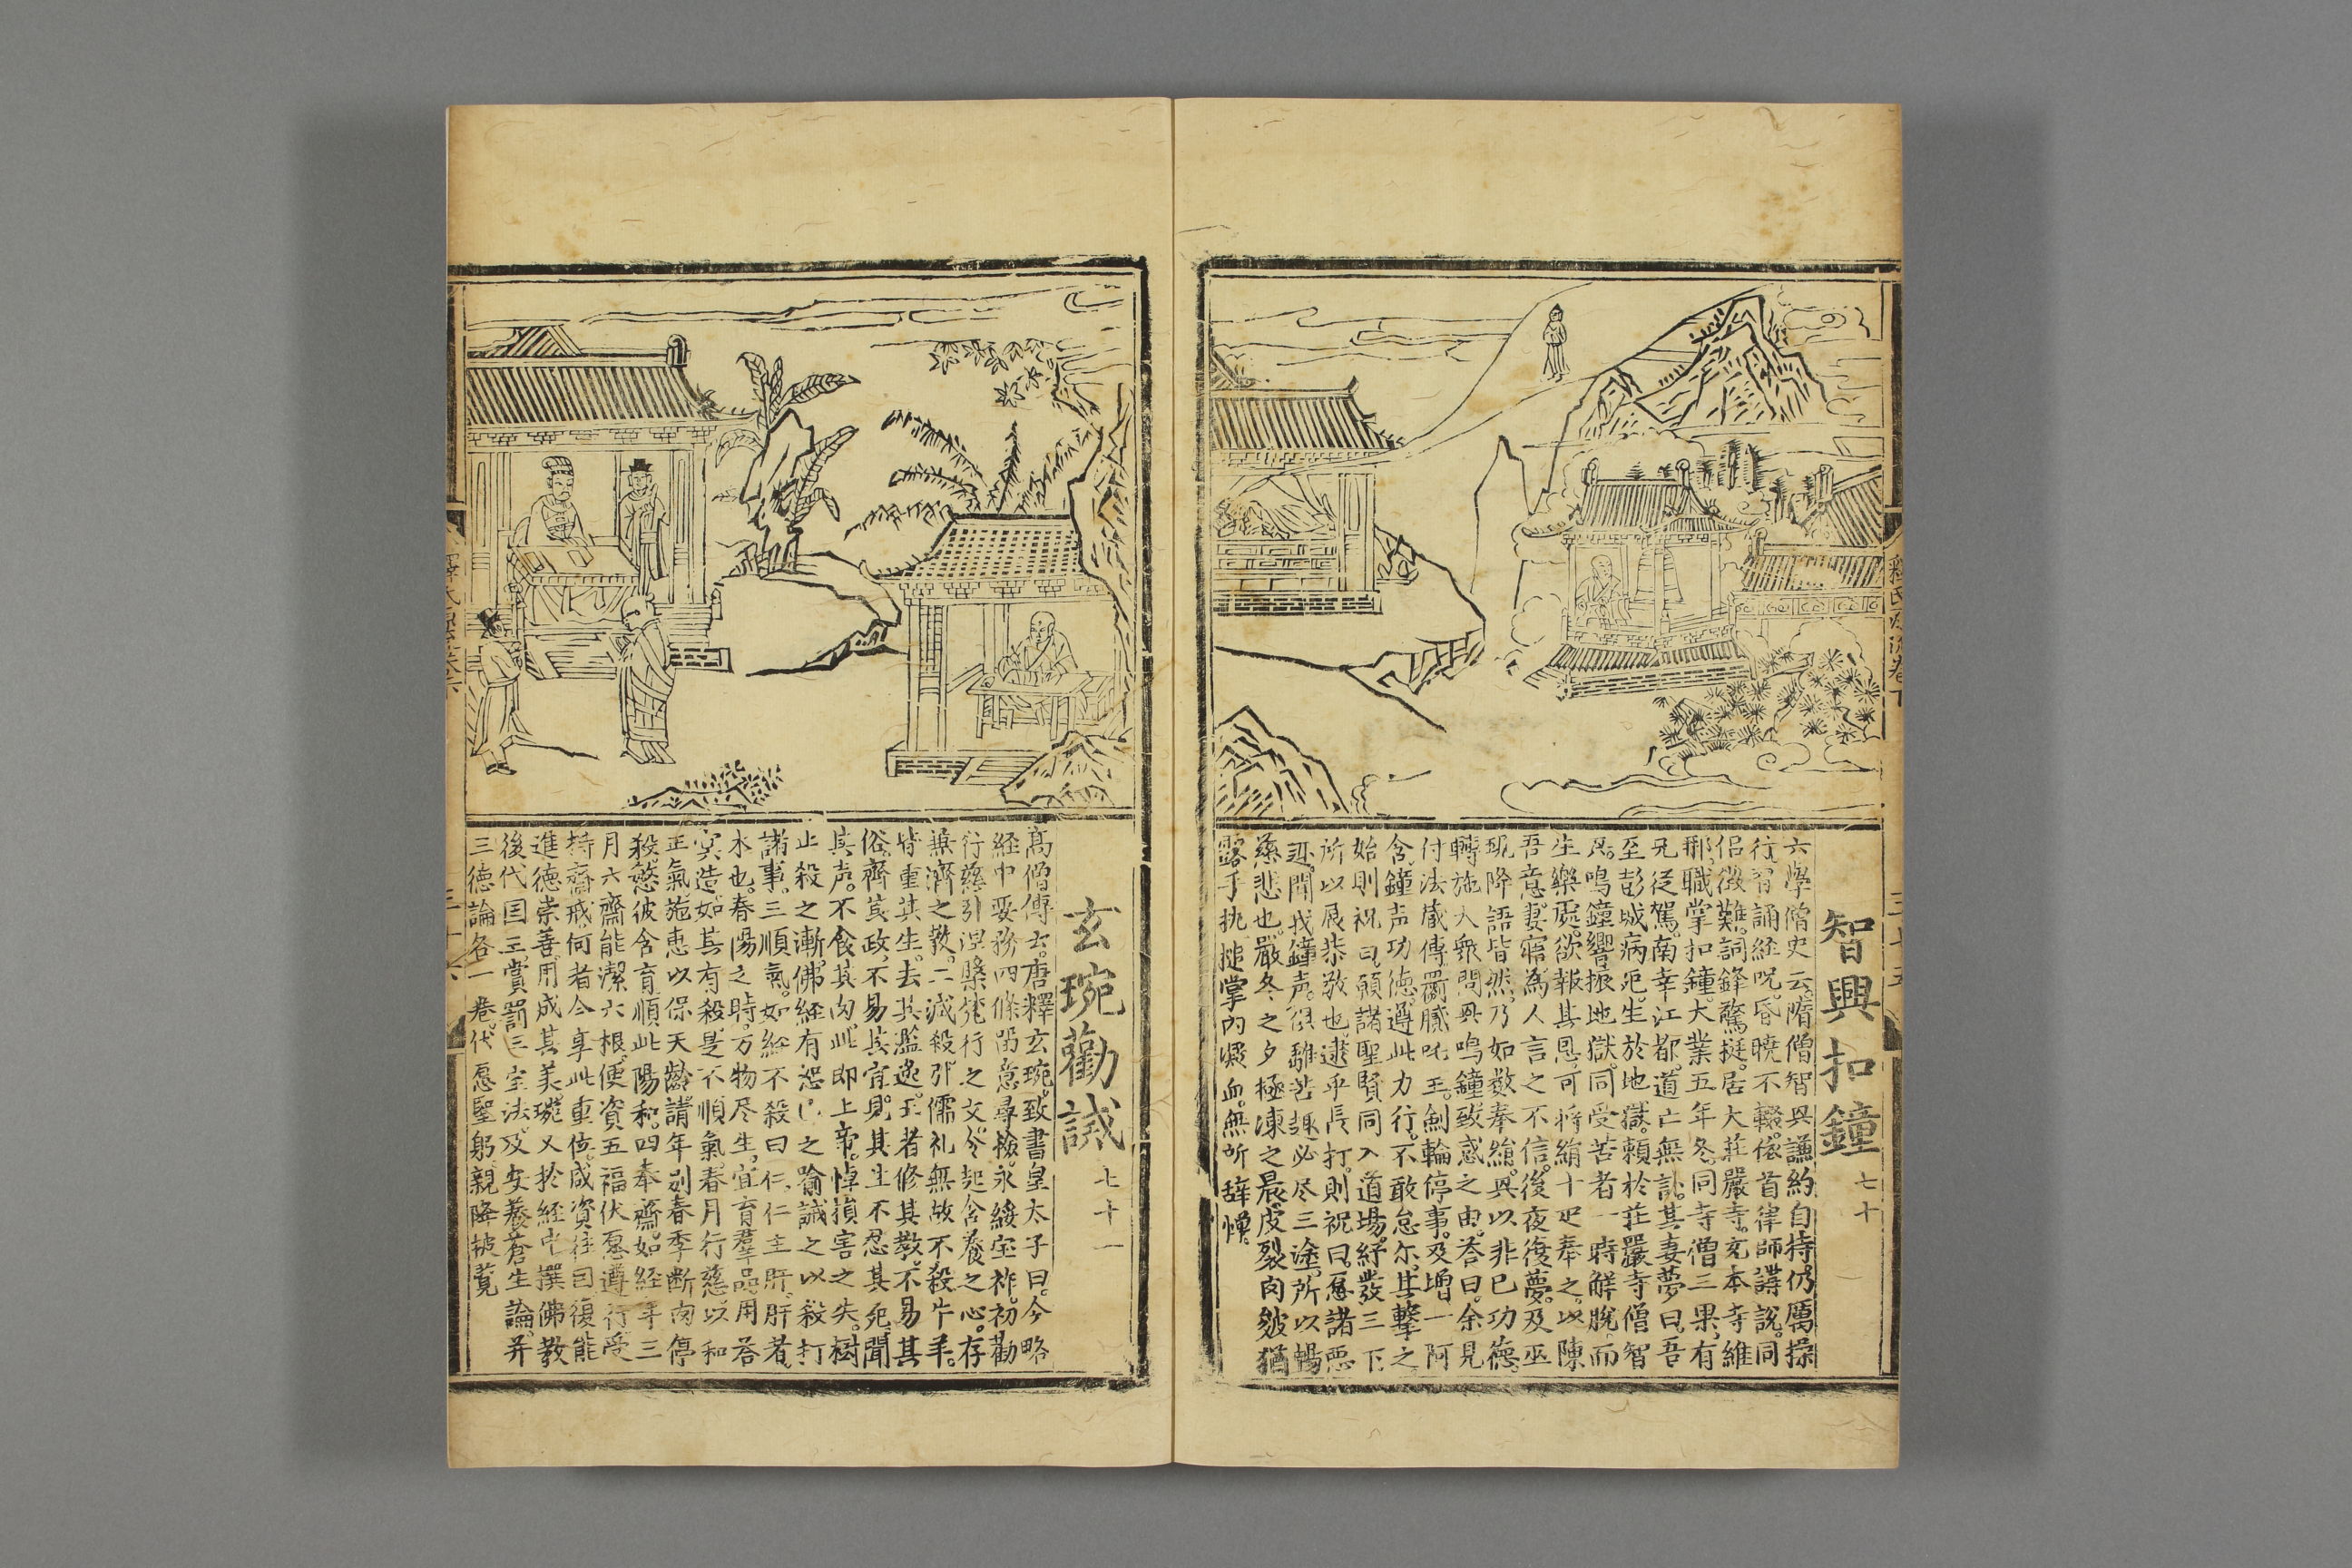 智興扣鐘 七十
六學僧史云。隋僧智興謙約自持仍厲操
行有誦経呪。昏曉不輟。依首律師講說。同
侶徵難。詞鋒驚挺。居大莊嚴寺。充本寺維
那。職掌扣鐘。大業五年冬。同寺僧三果。有
兄從駕。南幸江都。道亡無訃。其妻夢曰。吾
至彭城病死。生於地獄。賴於莊嚴寺僧智
興。鳴鐘響振地獄。同受苦者一時解脫。而
生樂處。欲報其恩。可將絹十疋奉之。以陳
吾意。妻寤為人言之不信。後夜復夢。及巫
覡降語皆然。乃如数奉絹。興以非已功德。
轉施大衆。問興鳴鐘致感之由。荅曰。余見
付法蔵傳罽膩吒王。劍輪停事。及增一阿
含鐘声功德。遵此力行。不敢怠尔。其撃之
始則祝曰。願諸聖賢同入道場。紓發三下
所以展恭敬也。逮乎長打。則祝曰。愿諸惡
趣。聞我鐘声。俱離苦趣。必尽三塗。所以暢
慈悲也。嚴冬之夕極凍之晨。皮裂肉皴。猶
露手執搥掌內凝血。無所辞憚。
玄琬勸誡 七十一
高僧傳云。唐釋玄琬。致書皇太子曰。今略
経中要務四條。留意尋撿。永綏宝祚。初勸
行慈引涅槃梵行之文。令起含養之心。存
兼濟之教。二減殺。引儒礼無故不殺牛羊。
皆重其生。去其濫逸。王者修其教。不易其
俗。齊其政。不易其宜。見其生不忍其死。聞
其声。不食其肉。此即上帝。悼損害之失。樹
止殺之漸。佛経有恕己之喻。誡之以殺打
諸事。三順氣。如経不殺曰仁。仁主肝。肝者
木也。春陽之時。万物尽生。宜育羣品。用荅
冥造。如其有殺。是不順氣。春月行慈。以和
正氣。施恵以保天齡。請年别春季断肉停
殺。慜彼含育。順此陽和。四奉齋。如経年三
月六齋。能潔六根。便資五福。伏愿遵行受
持齋戒。何者今享此重位。咸資往因。復能
進德崇善。用成其美。琬又於経中撰佛教
後代国王賞罰三宝法。及安養蒼生論。并
三德論各一卷。伏愿聖躬親降披覧